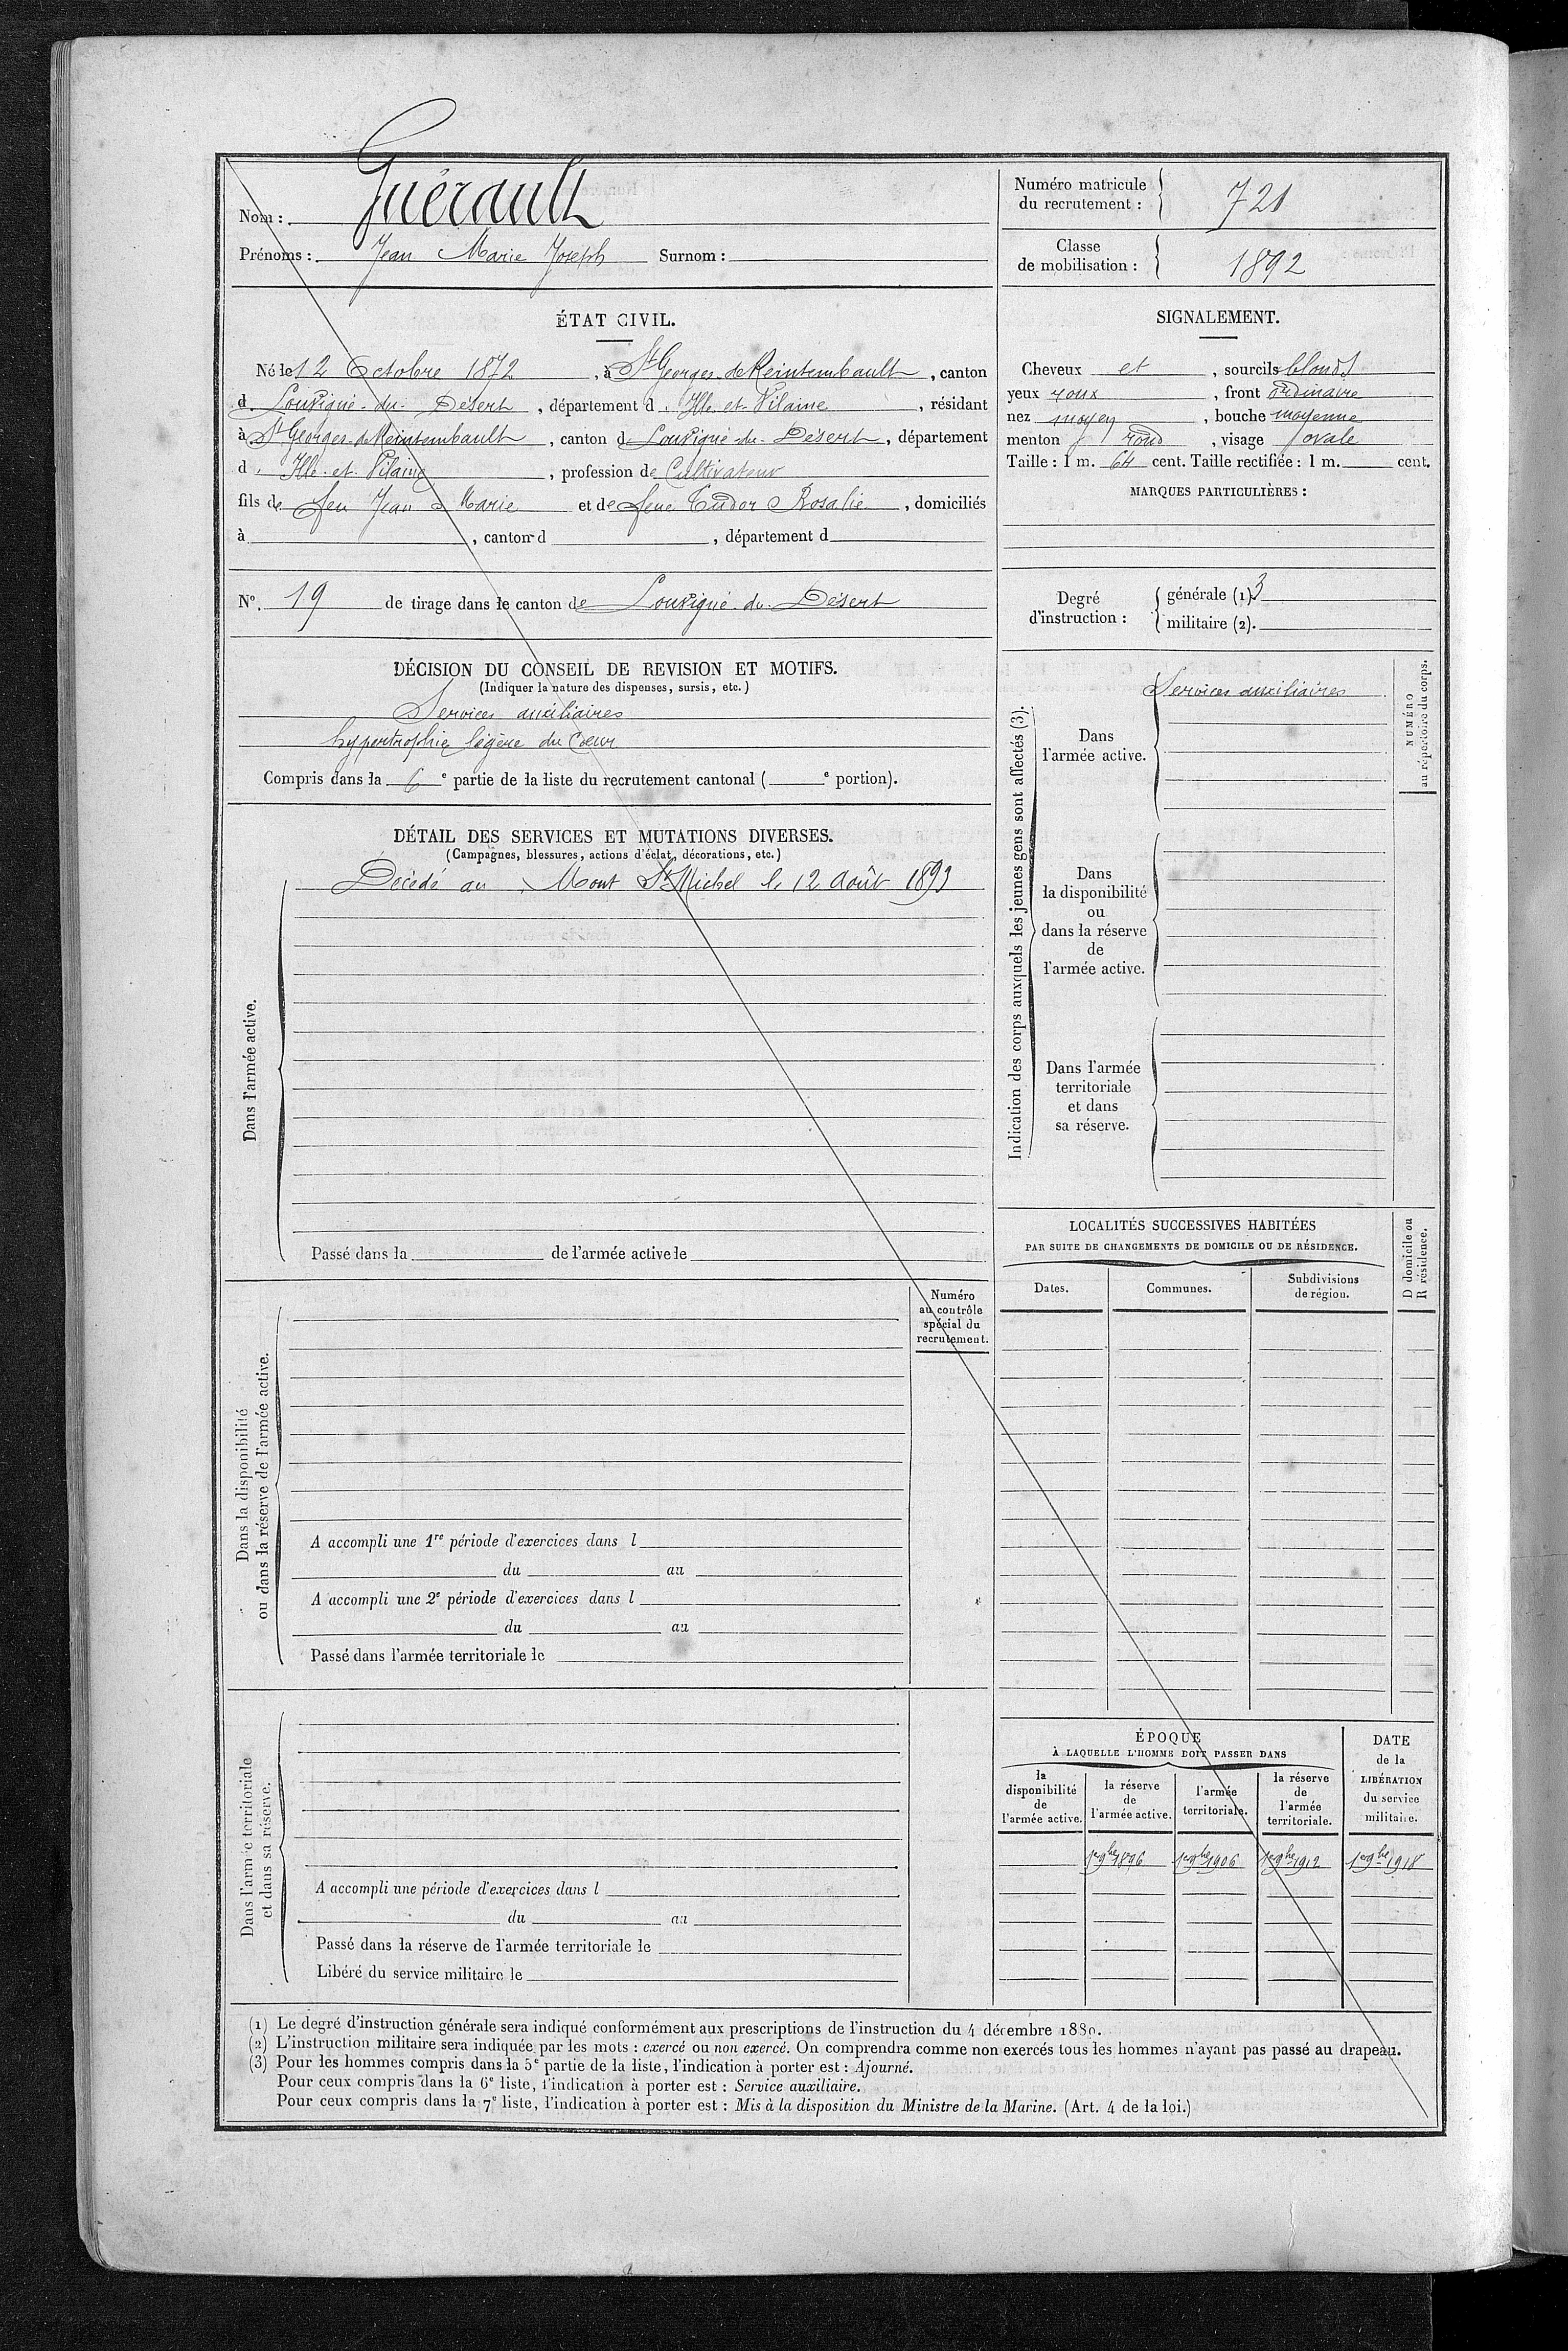 Nom : Guérault
Prénoms : Jean Marie Joseph Surnom :
Numéro matricule du recrutement : 721
Classe de mobilisation : 1892
ÉTAT CIVIL.
Né le 12 Octobre 1872, à St Georges de Reintembault, canton
d. Louvigné-du-Désert, département d. Ille et Vilaine, résidant
à St Georges de Reintembault, canton d Louvigné-du-Désert, département
d. Ille et Vilaine, profession de Cultivateur
fils de feu Jean Marie et de feue Tudor Rosalie, domiciliés
à , canton d , département d
N°. 19 de tirage dans le canton de Louvigné-du-Désert
DÉCISION DU CONSEIL DE REVISION ET MOTIFS.
(Indiquer la nature des dispenses, sursis, etc.)
Services auxiliaires
hypertrophie légère du Cœur
Compris dans la 6e partie de la liste du recrutement cantonal ( e portion).
DÉTAIL DES SERVICES ET MUTATIONS DIVERSES.
(Campagnes, blessures, actions d'éclat, décorations, etc.)
Dans l'armée active.
Décédé au Mont St Michel le 12 Août 1893
Passé dans la de l'armée active le
Numéro
au contrôle
spécial du
recrutement.
Dans la disponibilité
ou dans la réserve de l'armée active.
A accompli une 1re période d'exercices dans l
du au
A accompli une 2e période d'exercices dans l
du au
Passé dans l'armée territoriale le
Dans l'armée territoriale
et dans sa réserve.
A accompli une période d'exercices dans l
du au
Passé dans la réserve de l'armée territoriale le
Libéré du service militaire le
SIGNALEMENT.
Cheveux et, sourcils blonds
yeux roux, front ordinaire
nez moyen, bouche moyenne
menton rond, visage ovale
Taille : 1 m. 64 cent. Taille rectifiée : 1 m. cent.
MARQUES PARTICULIÈRES :
Degré d'instruction :
générale (1). 3
militaire (2).
Indication des corps auxquels les jeunes gens sont affectés (3).
NUMÉRO
au répertoire du corps.
Dans
l'armée active.
Services auxiliaires
Dans
la disponibilité
ou
dans la réserve
de
l'armée active.
Dans l'armée
territoriale
et dans
sa réserve.
LOCALITÉS SUCCESSIVES HABITÉES
PAR SUITE DE CHANGEMENTS DE DOMICILE OU DE RÉSIDENCE.
Dates.
Communes.
Subdivisions
de région.
D domicile ou
R résidence.
ÉPOQUE
À LAQUELLE L'HOMME DOIT PASSER DANS
la
disponibilité
de
l'armée active.
la réserve
de
l'armée active.
l'armée
territoriale.
la réserve
de
l'armée
territoriale.
DATE
de la
LIBÉRATION
du service
militaire.
1er 9bre 1896 1er 9bre 1906 1er 9bre 1912 1er 9bre 1918
(1) Le degré d'instruction générale sera indiqué conformément aux prescriptions de l'instruction du 4 décembre 1889.
(2) L'instruction militaire sera indiquée par les mots : exercé ou non exercé. On comprendra comme non exercés tous les hommes n'ayant pas passé au drapeau.
(3) Pour les hommes compris dans la 5e partie de la liste, l'indication à porter est : Ajourné.
Pour ceux compris dans la 6e liste, l'indication à porter est : Service auxiliaire.
Pour ceux compris dans la 7e liste, l'indication à porter est : Mis à la disposition du Ministre de la Marine. (Art. 4 de la loi.)